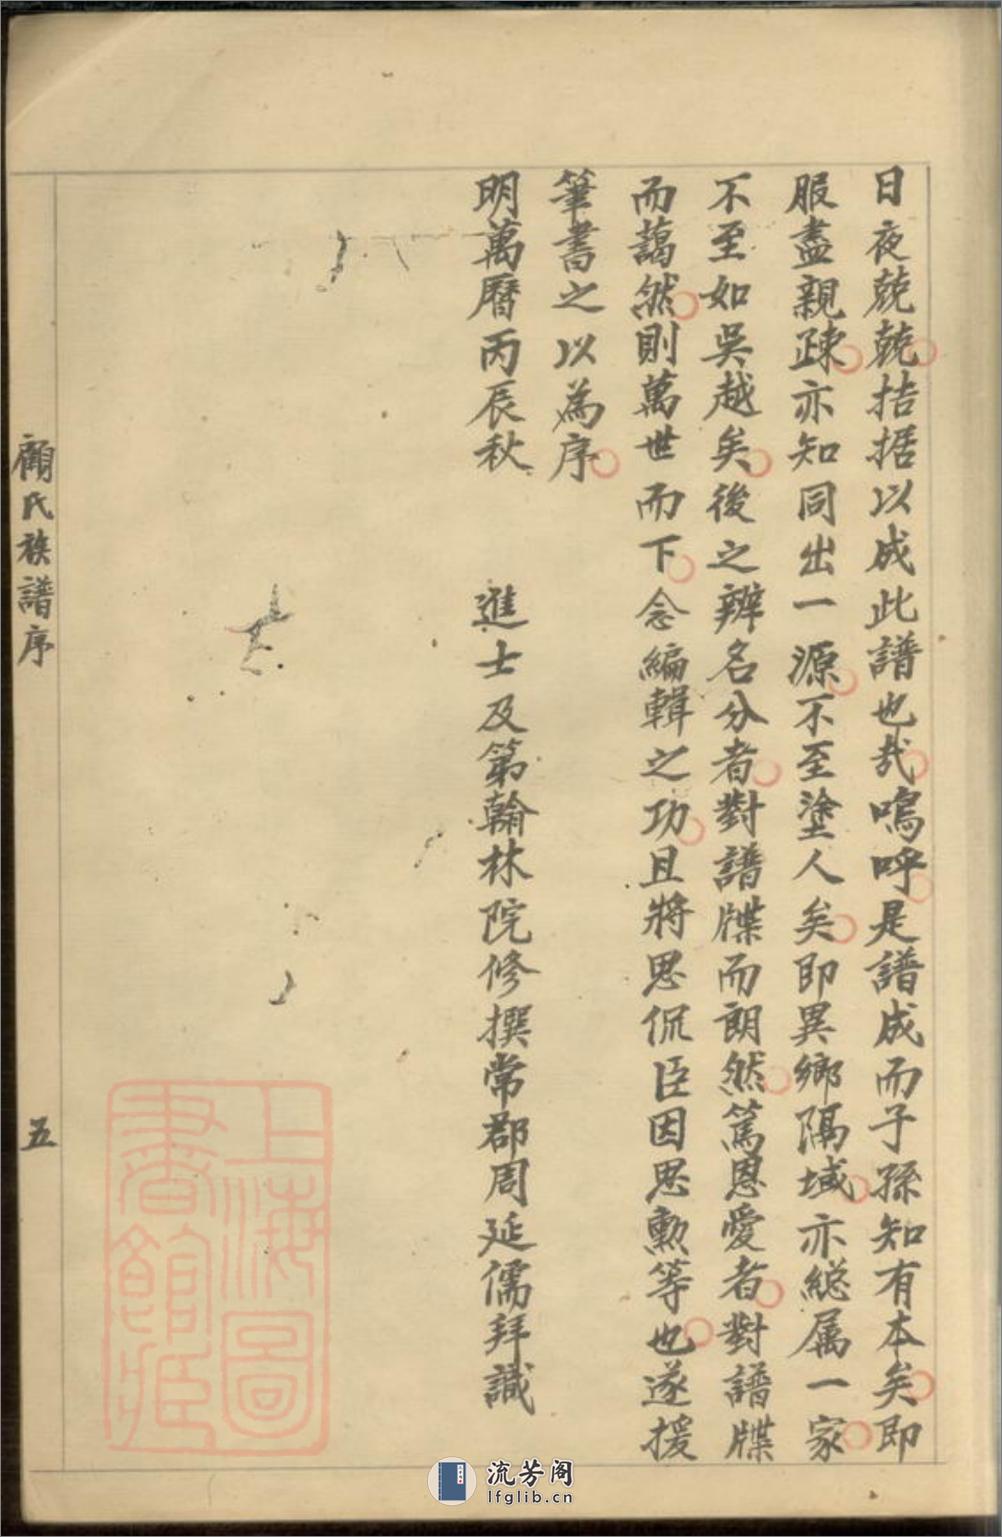 日夜兢兢拮据以成此譜也哉嗚呼是譜成而子孫知有本矣即
服盡親疎亦知同出一源不至塗人矣即異鄉隔域亦総属一家
不至如吳越矣後之辨名分者對譜牒而朗然篤恩愛者對譜牒
而藹然則萬世而下念編輯之功且將思侃臣因思勲等也遂援
筆書之以為序
明萬曆丙辰秋 進士及第翰林院修撰常郡周延儒拜識
顧氏族譜序
五
上海圖
書館藏
流芳阁
lfglib.cn